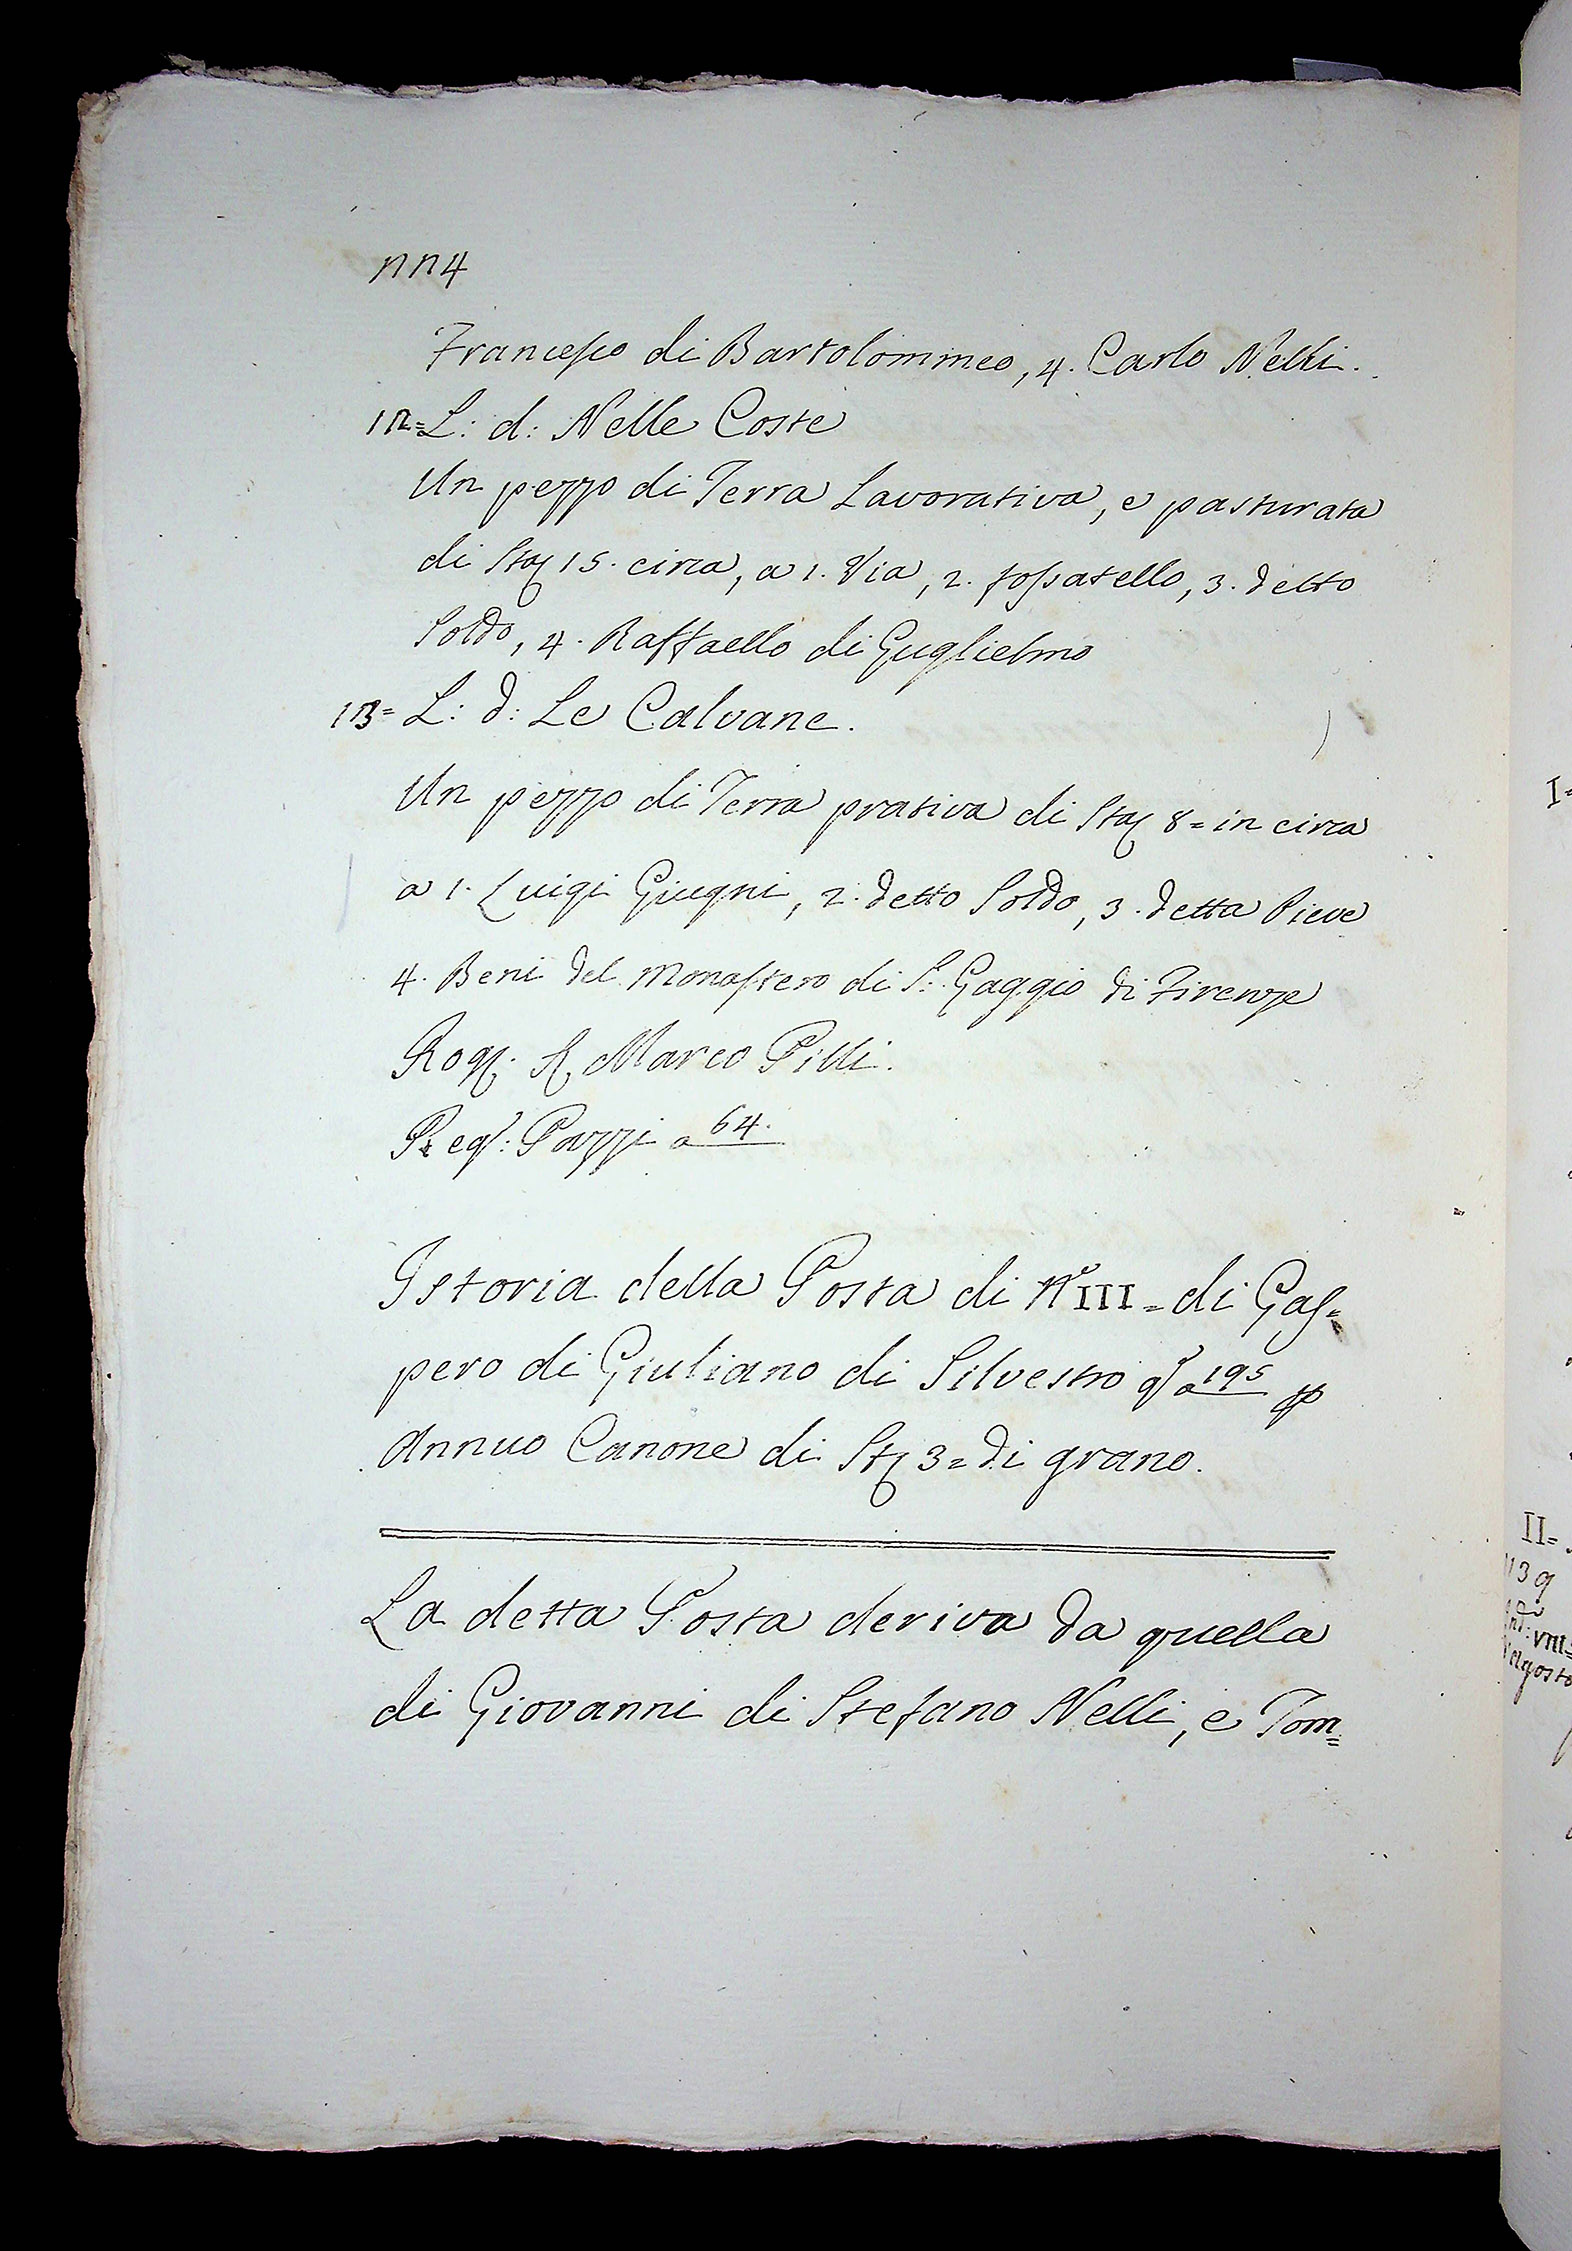 nn4
Francesco di Bartolommeo, 4. Carlo Nelli.
12= L: d: Nelle Coste
Un pezzo di Terra Lavorativa, e pasturata
di Sta 15. circa, a 1. Via, 2. fossatello, 3. detto
Soldo, 4. Raffaello di Guglielmo
13= L: d: Le Calvane.
Un pezzo di Terra prativa di Sta 8= in circa
a 1. Luigi Giugni, 2. detto Soldo, 3. detta Pieve
4. Beni del Monastero di S: Gaggio di Firenze
Rog. S. Marco Pilli.
Reg: Pazzi a 64.
Istoria della Posta di N° III= di Gas=
pero di Giuliano di Silvestro q a 195 p
Annuo Canone di St 3= di grano.
La detta Posta deriva da quella
di Giovanni di Stefano Nelli, e Tom=
I=
II=
139
Ind: VIII=
Agosto